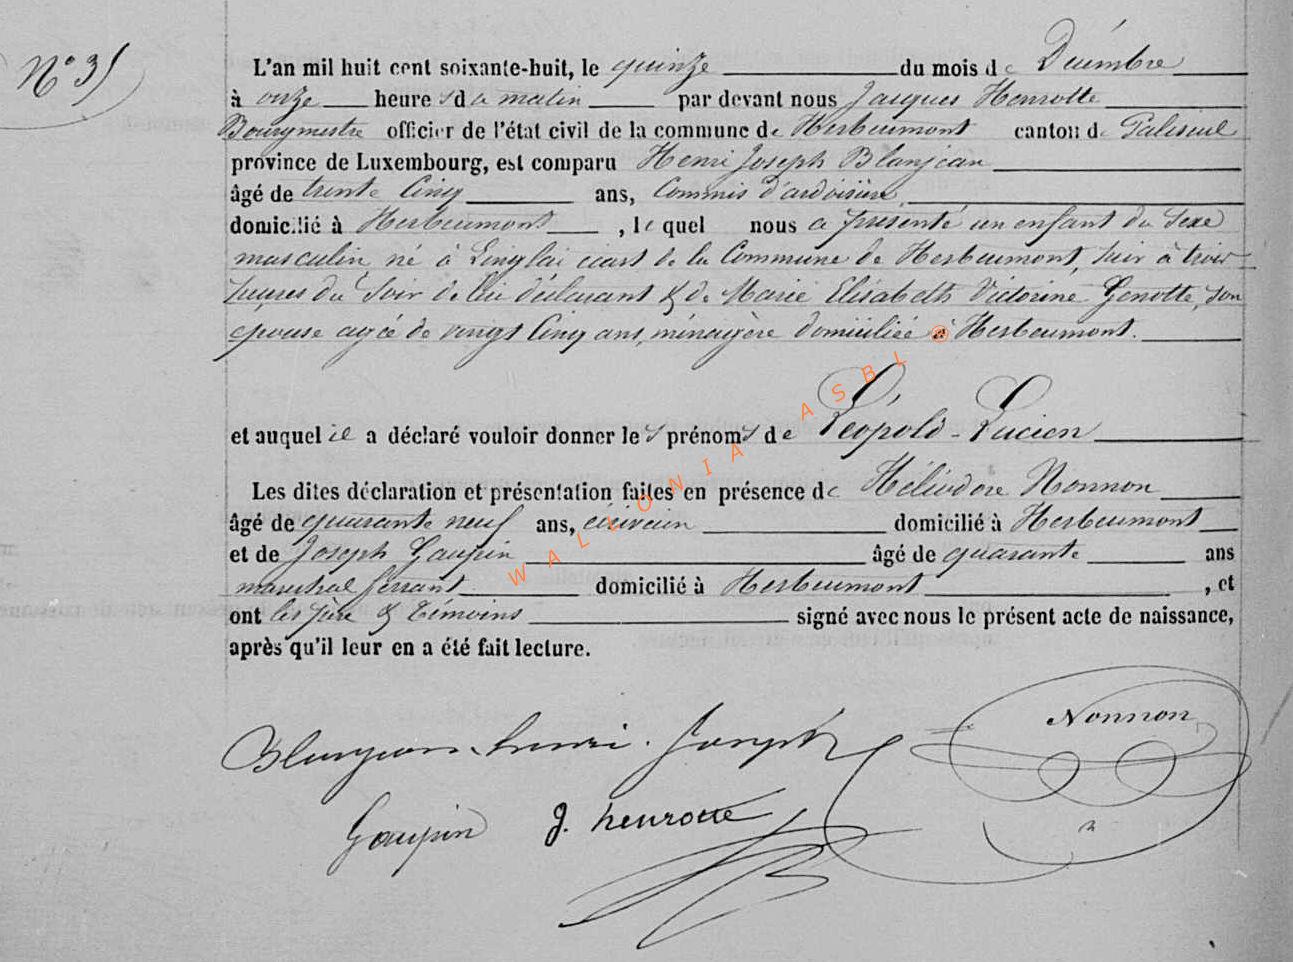 N° 35
L'an mil huit cent soixante-huit, le quinze du mois de Décembre
à onze heures du matin par devant nous Jacques Henrotte
Bourgmestre officier de l'état civil de la commune de Herbeumont canton de Paliseul
province de Luxembourg, est comparu Henri Joseph Blanjean
âgé de trente cinq ans, Commis d'ardoisière,
domicilié à Herbeumont, lequel nous a présenté un enfant du sexe
masculin, né à Linglai écart de la Commune de Herbeumont, hier à trois
heures du soir de lui déclarant & de Marie Elisabeth Victorine Genotte, son
épouse agée de vingt cinq ans, ménagère domiciliée à Herbeumont.
et auquel il a déclaré vouloir donner les prénoms de Léopold-Lucien
Les dites déclaration et présentation faites en présence de Héliodore Nonnon
âgé de quarante neuf ans, écrivain domicilié à Herbeumont
et de Joseph Gaupin âgé de quarante ans
maréchal ferrant domicilié à Herbeumont, et
ont les père & témoins signé avec nous le présent acte de naissance,
après qu'il leur en a été fait lecture.
Blanjean henri Joseph
Nonnon
Gaupin J. henrotte
WALLONIA ASBL @